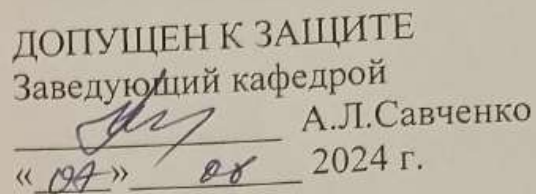 ДОПУЩЕН К ЗАЩИТЕ
Заведующий кафедрой
А.Л.Савченко
« » 2024 г.